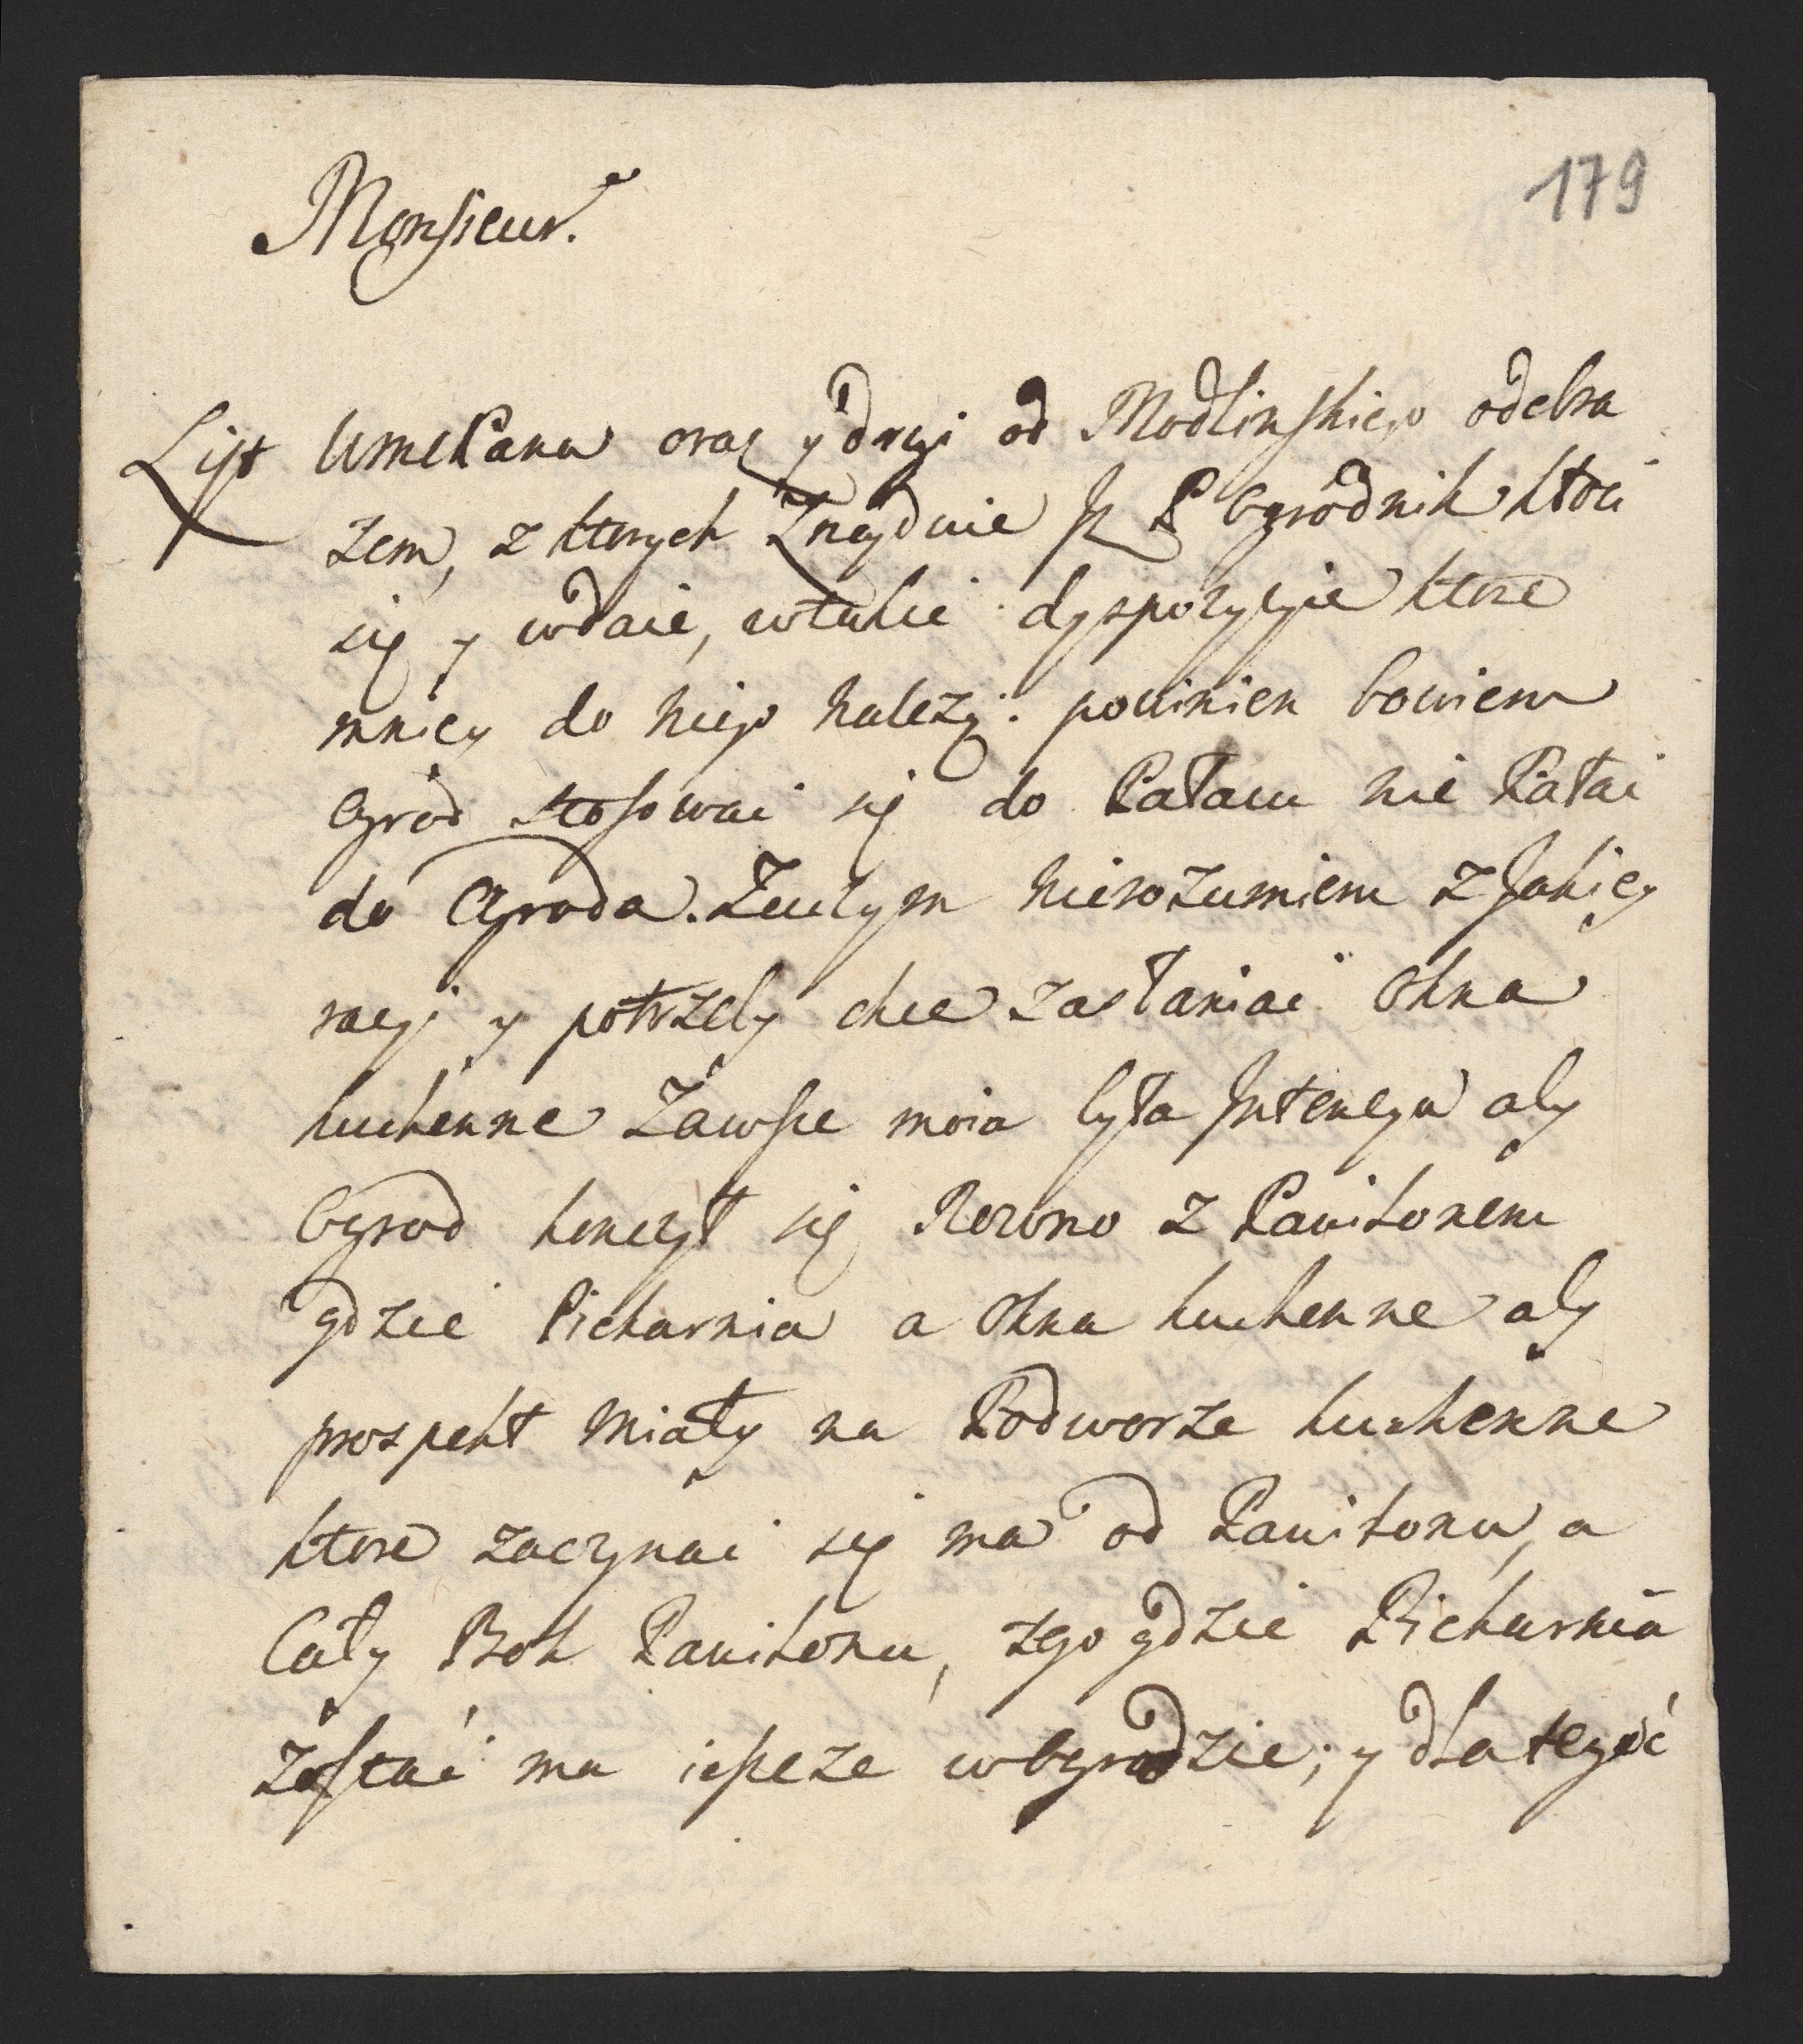 179
Monsieur.
List WmcPana oraz y drugi od Modlinskiego odebra
łem, z ktorych Znayduie że P Ogrodnik kłoci
się y wdaie, w takie dyspozycyie ktore
mniey do niego należą. powinien bowiem
Ogrod stosowac się do Pałacu nie Pałac
do Ogroda. Zaczym nierozumiem z Jakiey
racyi y potrzeby chce zasłaniac Okna
kuchenne Zawsze moia była Intencya aby
Ogrod konczył się Rowno z Pawilonem
gdzie Piekarnia a Okna kuchenne aby
prospekt miały na Podworze kuchenne
ktore zaczynac się ma od Pawilonu, a
Cały Bok Pawilonu, tego gdzie Piekarnia
Zostać ma ieszcze w Ogrodzie; y dla tegoć